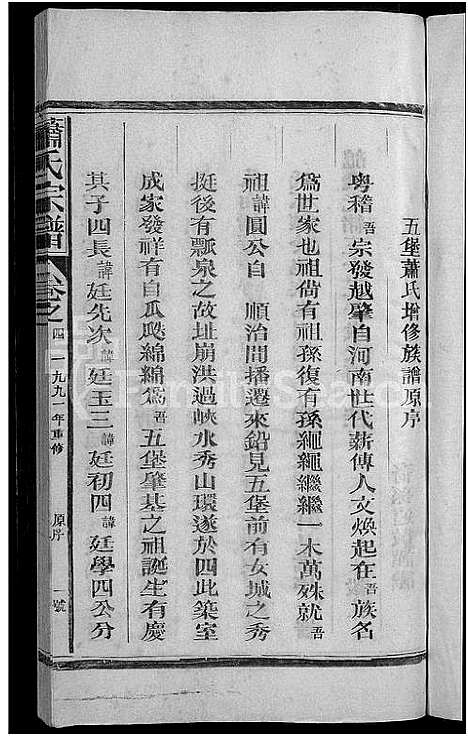 五堡蕭氏增修族譜原序
粵稽吾宗發越肇自河南世代薪傳人文煥起在吾族名
爲世家也祖尙有祖孫復有孫繩繩繼繼一木萬殊就吾
祖諱圓公自 順治間播遷來鉛見五堡前有女城之秀
挺後有瓢泉之故址崩洪過峽水秀山環遂於四此築室
成家發祥有自瓜瓞綿綿爲吾五堡肇基之祖誕生有慶
其子四長諱廷先次諱廷玉三諱廷初四諱廷學四公分
蕭氏宗譜 卷之四 一九九一年重修 原序 一號
FamilySearch